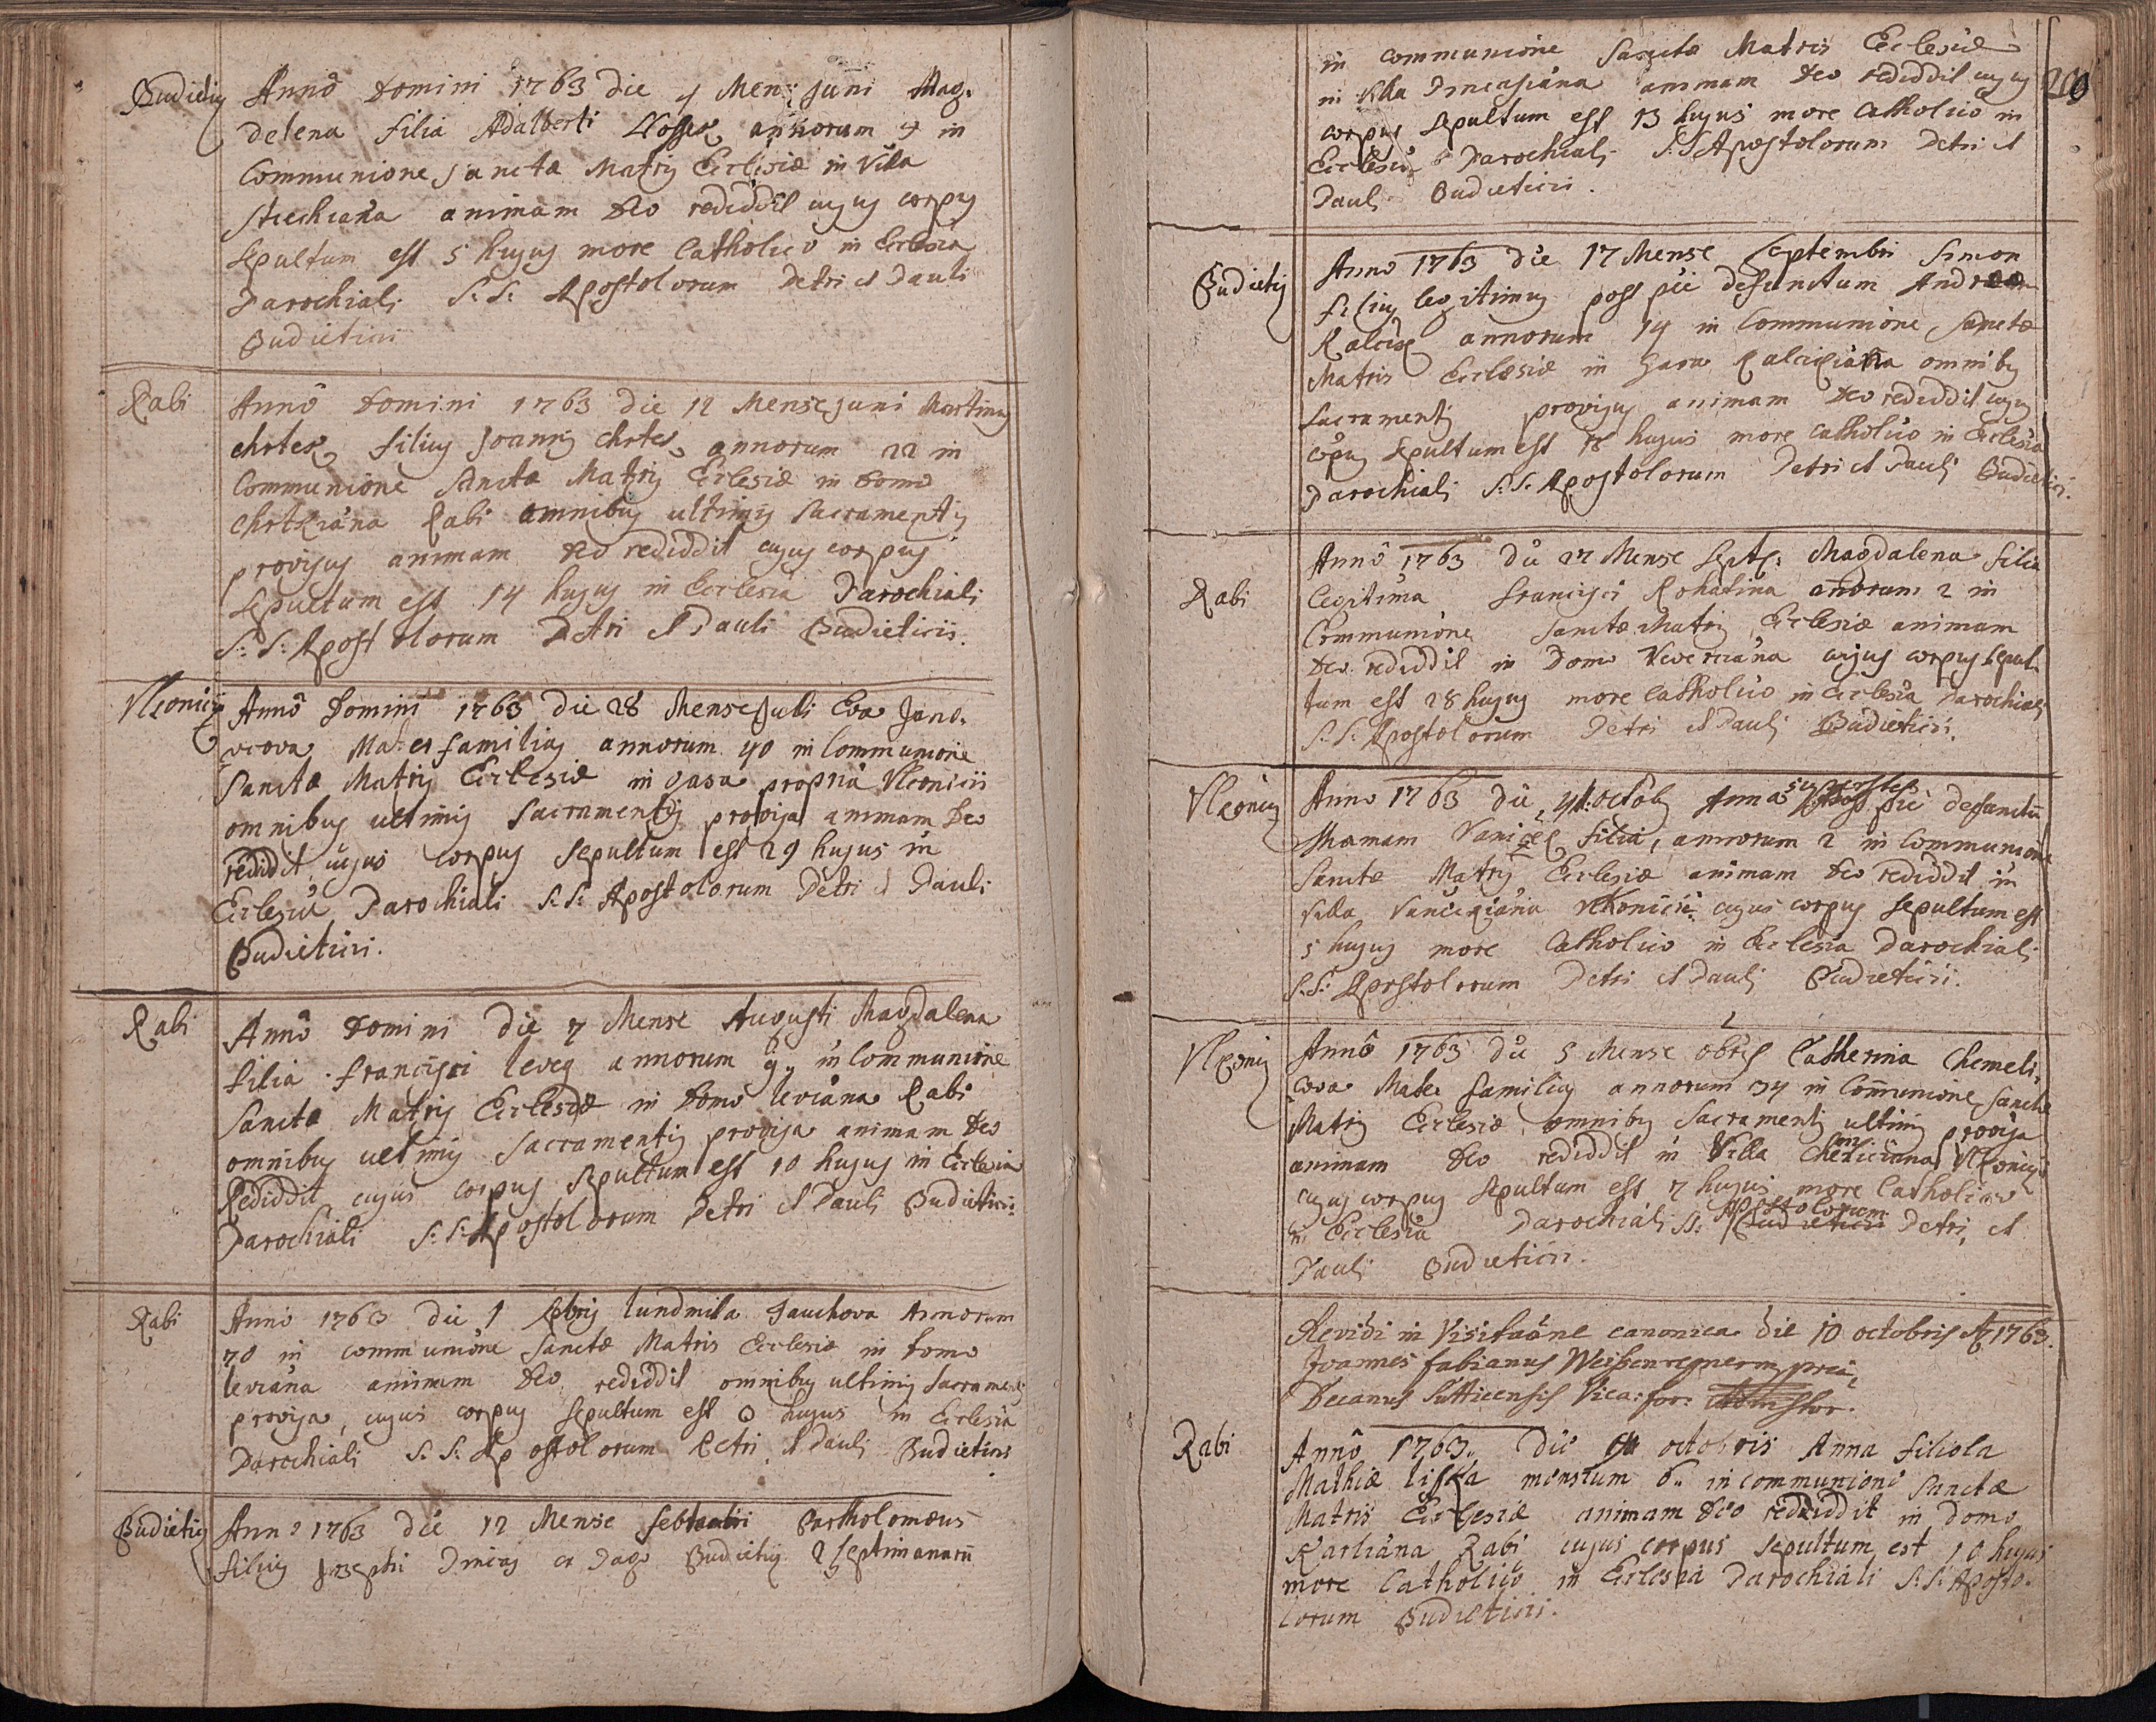 Budietiy Anno Domini 1763 die Mens Juni Mag.
delena filia Adalberti annorum in
Communione sanctæ Matris Ecclesiæ in Villa
animam Deo rediddit cujus corpus
sepultum est 5 hujus more Catholico in Ecclesia
Parochiali S: S: Apostolorum Petri et Pauli
Budieticii
Rabi Anno Domini 1763 die 12 Mense Juni Martinus
chrtek filius Joannis chrtek annorum 22 in
Communione Sanctæ Matris Ecclesiæ in Domo
chrtkiana Rabi omnibus ultimis Sacramentis
provisus animam Deo rediddit cujus corpus
sepultum est 14 hujus in Ecclesia Parochiali
S: S: Apostolorum Petri et Pauli Budieticii.
Anno Domini 1763 die 28 Mense Juli Eva
Mater familias annorum 40 in Communione
Sanctæ Matris Ecclesiæ in propria
omnibus ultimis Sacramentis provisa animam Deo
rediddit cujus corpus sepultum est 29 hujus in
Ecclesia Parochiali S: S: Apostolorum Petri et Pauli
Budieticii.
Rabi Anno Domini die 7 Mense Augusti Magdalena
filia francisci annorum 9.. in Communione
Sanctæ Matris Ecclesiæ in Domo leviana Rabi
omnibus ultimis Sacramentis provisa animam Deo
Rediddit cujus corpus sepultum est 10 hujus in Ecclesia
Parochiali S: S: Apostolorum Petri et Pauli Budieticii
Rabi Anno 1763 die 1 lundmila Annorum
70 in communione Sanctæ Matris Ecclesiæ in Domo
leviana animam Deo rediddit omnibus ultimis Sacramentis
provisa, cujus corpus sepultum est hujus in Ecclesia
Parochiali S: S: Apostolorum Petri et Pauli Budieticii
Budietiy Anno 1763 die 12 Mense Bartholomæus
filius Josephi ex Pago Budietiy 2 septimanarū
in communione Sanctæ Matris Ecclesiæ
in Villa animam Deo rediddit cujus
corpus sepultum est 13 hujus more Catholico in
Ecclesia Parochiali S: S Apostolorum Petri et
Pauli Budieticii.
Budietiy Anno 1763 die 17 Mense Septembri Simon
filius legitimus post pie defunctum
annorum 14 in Communione Sanctæ
Matris Ecclæsiæ in omnibus
Sacramentis provisus animam Deo rediddit cujus
sepultum est 18 hujus more Catholico in Ecclesia
Parochiali S: S: Apostolorum Petri et Pauli Budieticii.
Anno 1763 die 27 Mense Magdalena filia
Rabi legitima francisci Rohatina 2 in
Communione Sanctæ Matris Ecclesiæ animam
Deo rediddit in Domo cujus corpus sepul
tum est 28 hujus more Catholico in Ecclesia Parochiali
S: S: Apostolorum Petri et Pauli Budieticii.
Anno 1763 die Anna superstes pie defunctū
filia, annorum 2 in Communione
Sanctæ Matris Ecclesiæ animam Deo rediddit in
Villa cujus corpus sepultum est
5 hujus more Catholico in Ecclesia Parochiali
S: S: Apostolorum Petri et Pauli Budieticii.
Anno 1763 die 5 Mense Catherina Chemeli
cova Mater familias annorum 34 in Communione Sanctæ
Matris Ecclesiæ omnibus Sacramentis ultimis provisa
animam Deo rediddit in Villa
cujus corpus sepultum est 7 hujus more Catholico
in Ecclesia Parochiali SS: Apostolorum Petri, et
Pauli Budieticii.
Revidi in Visitaōne canonica die 10 octobris 1763.
Joannes fabianus
Decanus Sutticensis Vica: for:
Rabi Anno 1763.. Die octobris Anna filiola
Mathiæ liska mensium 6.. in communione Sanctæ
Matris Ecclesiæ animam Deo rediddit in Domo
Karliana Rabi cujus corpus sepultum est 10 hujus
more Catholico in Ecclesia Parochiali S: S: Aposto-
lorum Budieticii.